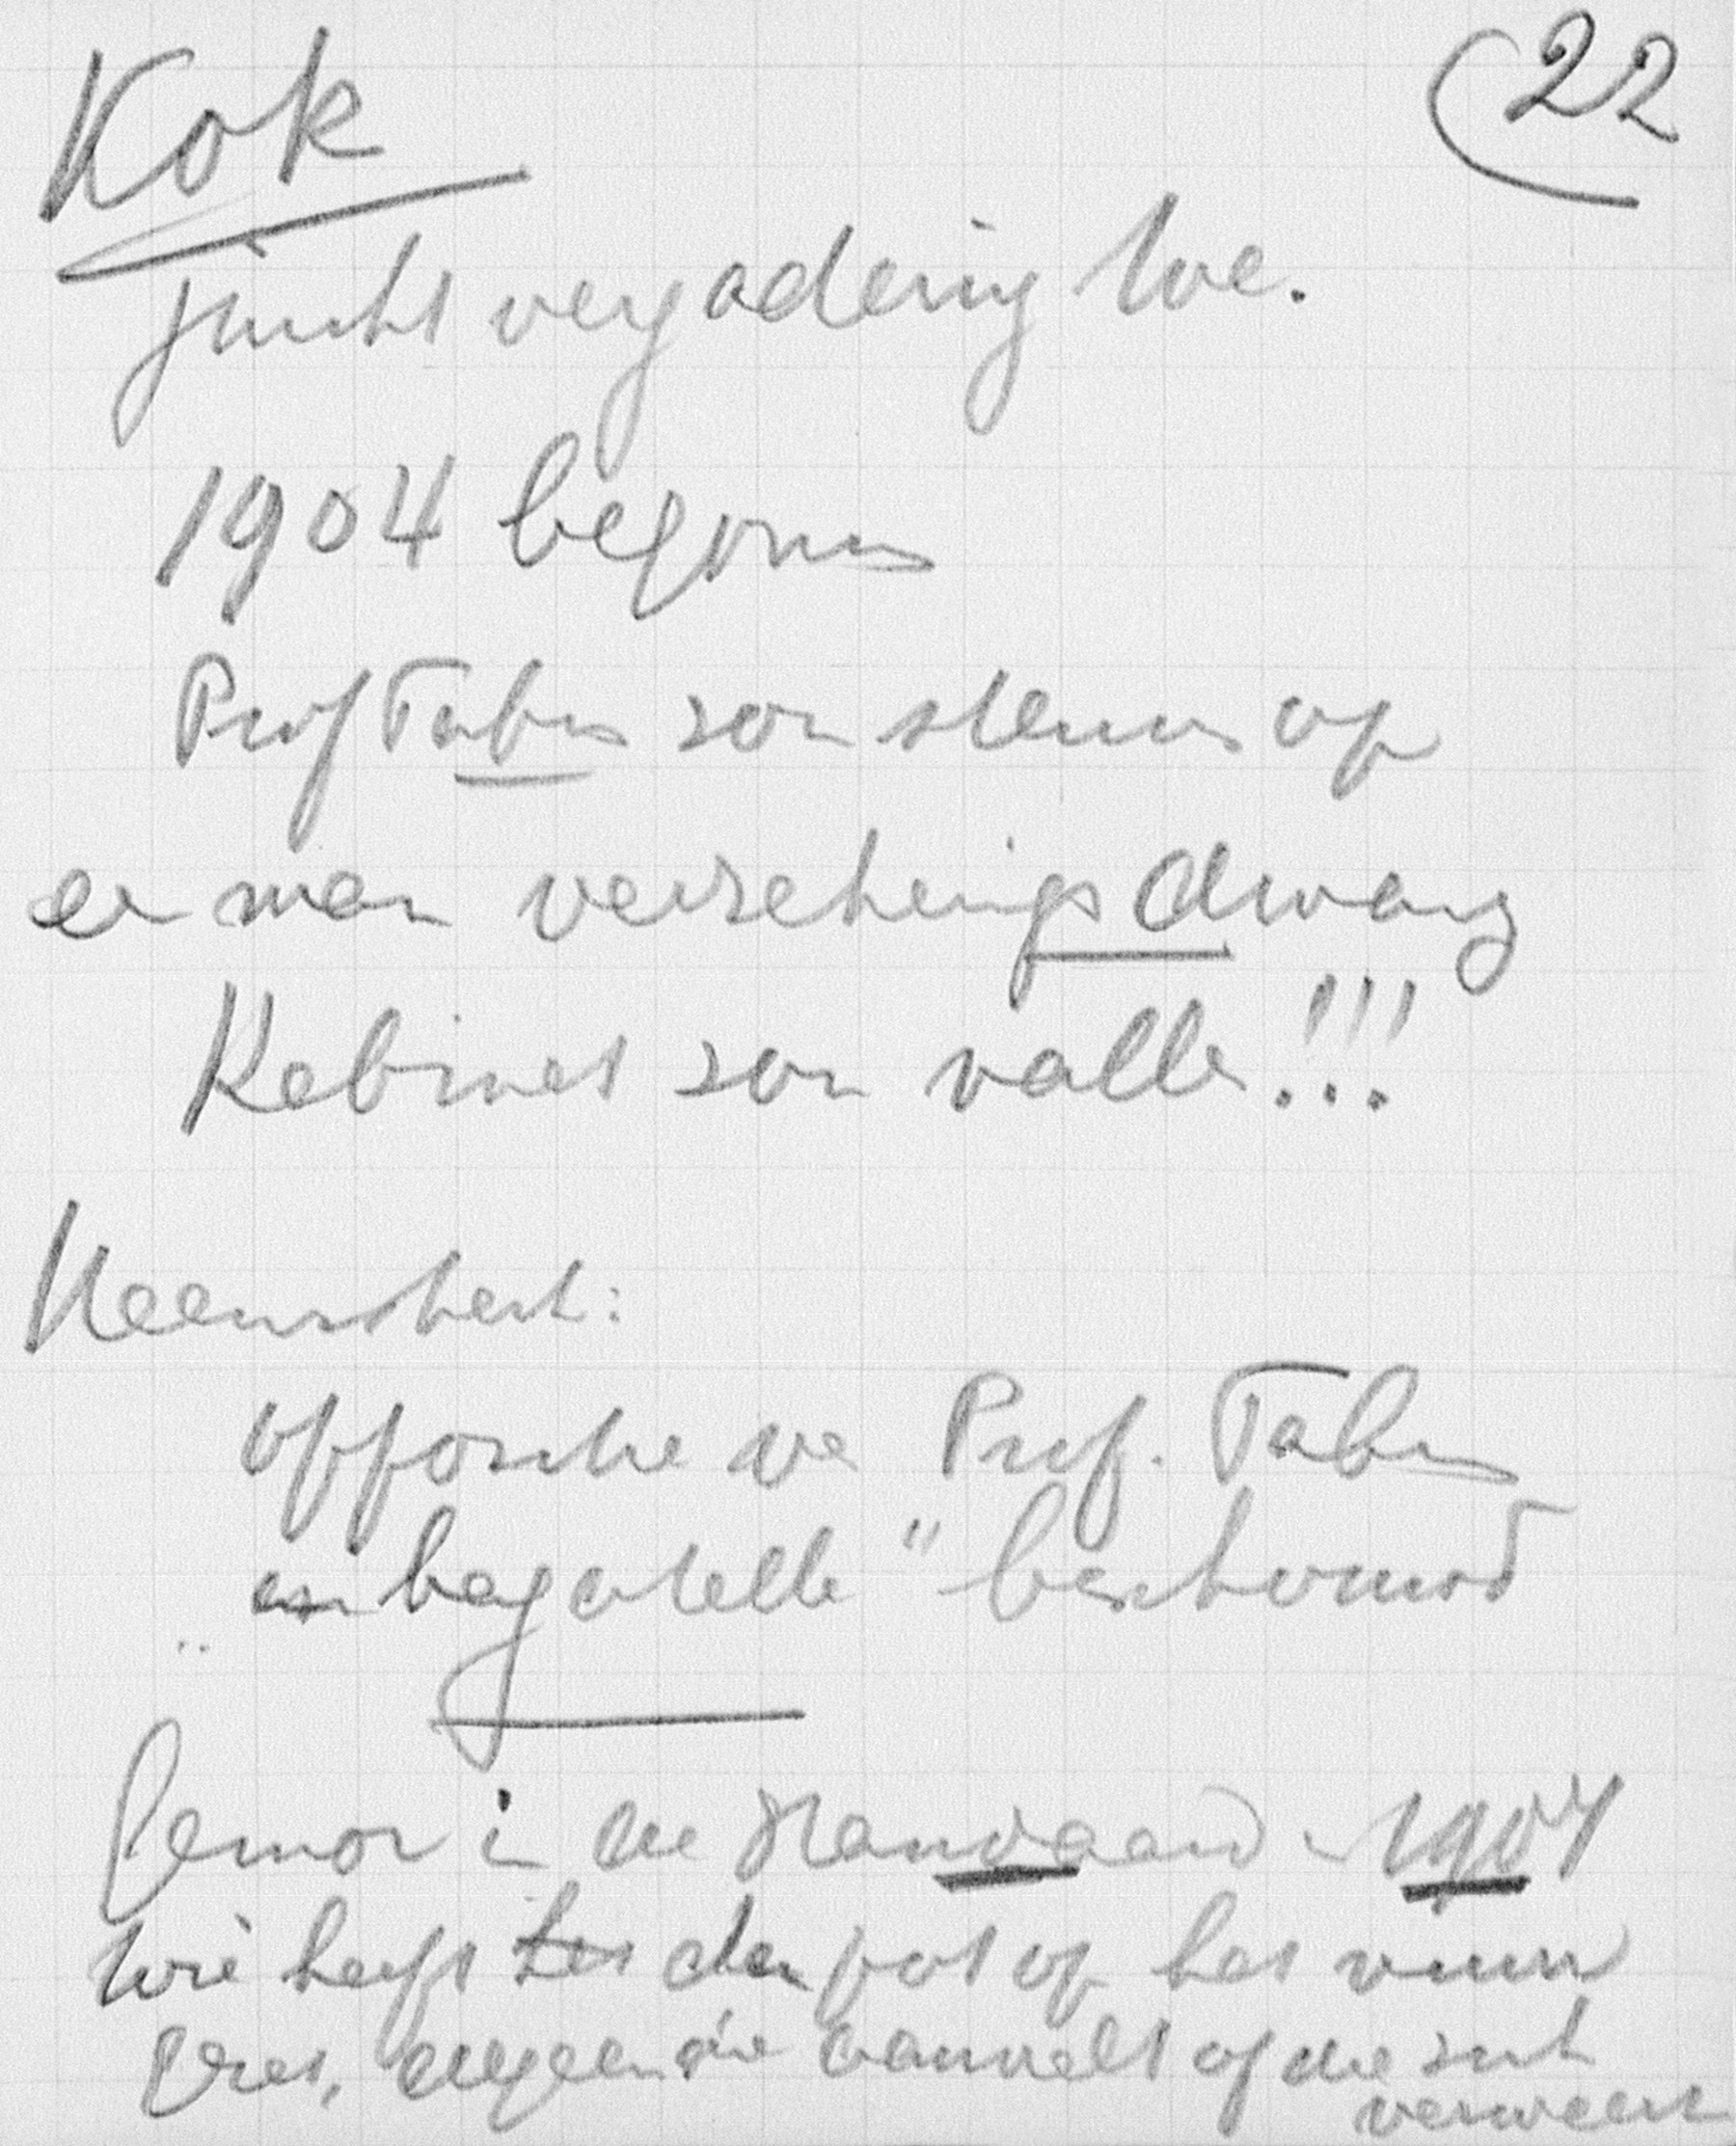 Kok
22
juicht vergadering toe.
1904 begonnen
Prof Fabius zou stemmen op
een man verzekerings dwang
Kabinet zou vallen!!!
Heemskerk:
oppositie van Prof. Fabius
"bagatelle" beschouwd
in de Standaard 1904
wie heeft den pot op het vuur
gezet, degeen die aanvalt of die zich
verweert